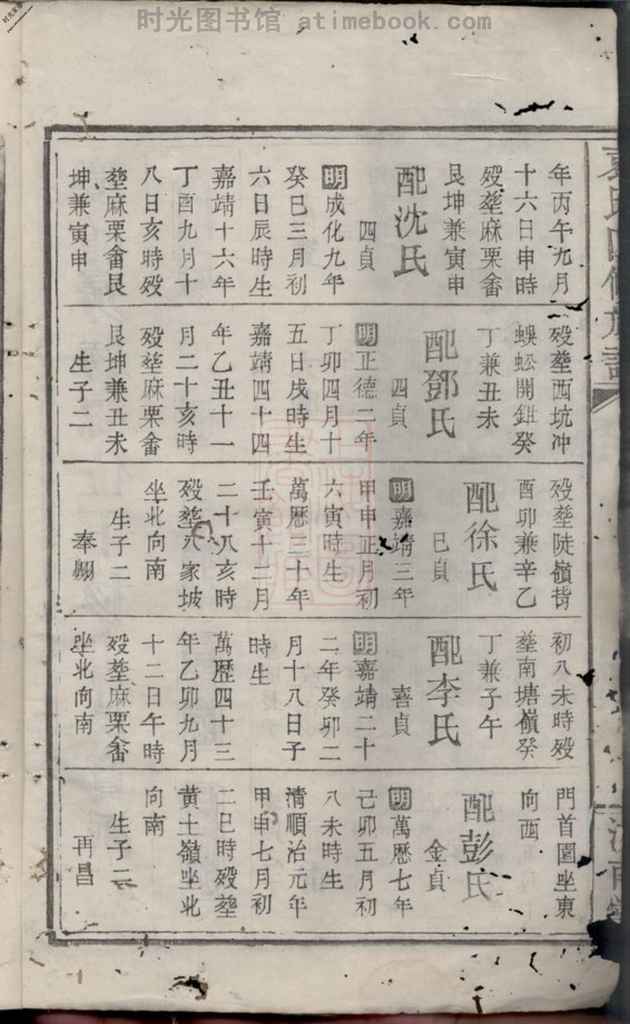 时光图书馆 atimebook.com
年丙午九月
十六日申時
歿塟麻栗畲
艮坤兼寅申
配沈氏
四貞
明成化九年
癸巳三月初
六日辰時生
嘉靖十六年
丁酉九月十
八日亥時歿
塟麻栗畲艮
坤兼寅申
歿塟西坑冲
蜈蚣開鉗癸
丁兼丑未
配鄧氏
四貞
明正德二年
丁卯四月十
五日戌時生
嘉靖四十四
年乙丑十一
月二十亥時
歿塟麻栗畲
艮坤兼丑未
生子二
歿塟陡嶺背
酉卯兼辛乙
配徐氏
巳貞
明嘉靖三年
甲申正月初
六寅時生
萬曆三十年
壬寅十二月
二十八亥時
歿塟八家坡
坐北向南
生子二
奉
初八未時歿
塟南塘嶺癸
丁兼子午
配李氏
喜貞
明嘉靖二十
二年癸卯二
月十八日子
時生
萬歷四十三
年乙卯九月
十二日午時
歿塟麻栗畲
坐北向南
門首園坐東
向西
配彭氏
金貞
明萬歷七年
己卯五月初
八未時生
清順治元年
甲申七月初
二巳時歿塟
黃土嶺坐北
向南
生子二
再昌